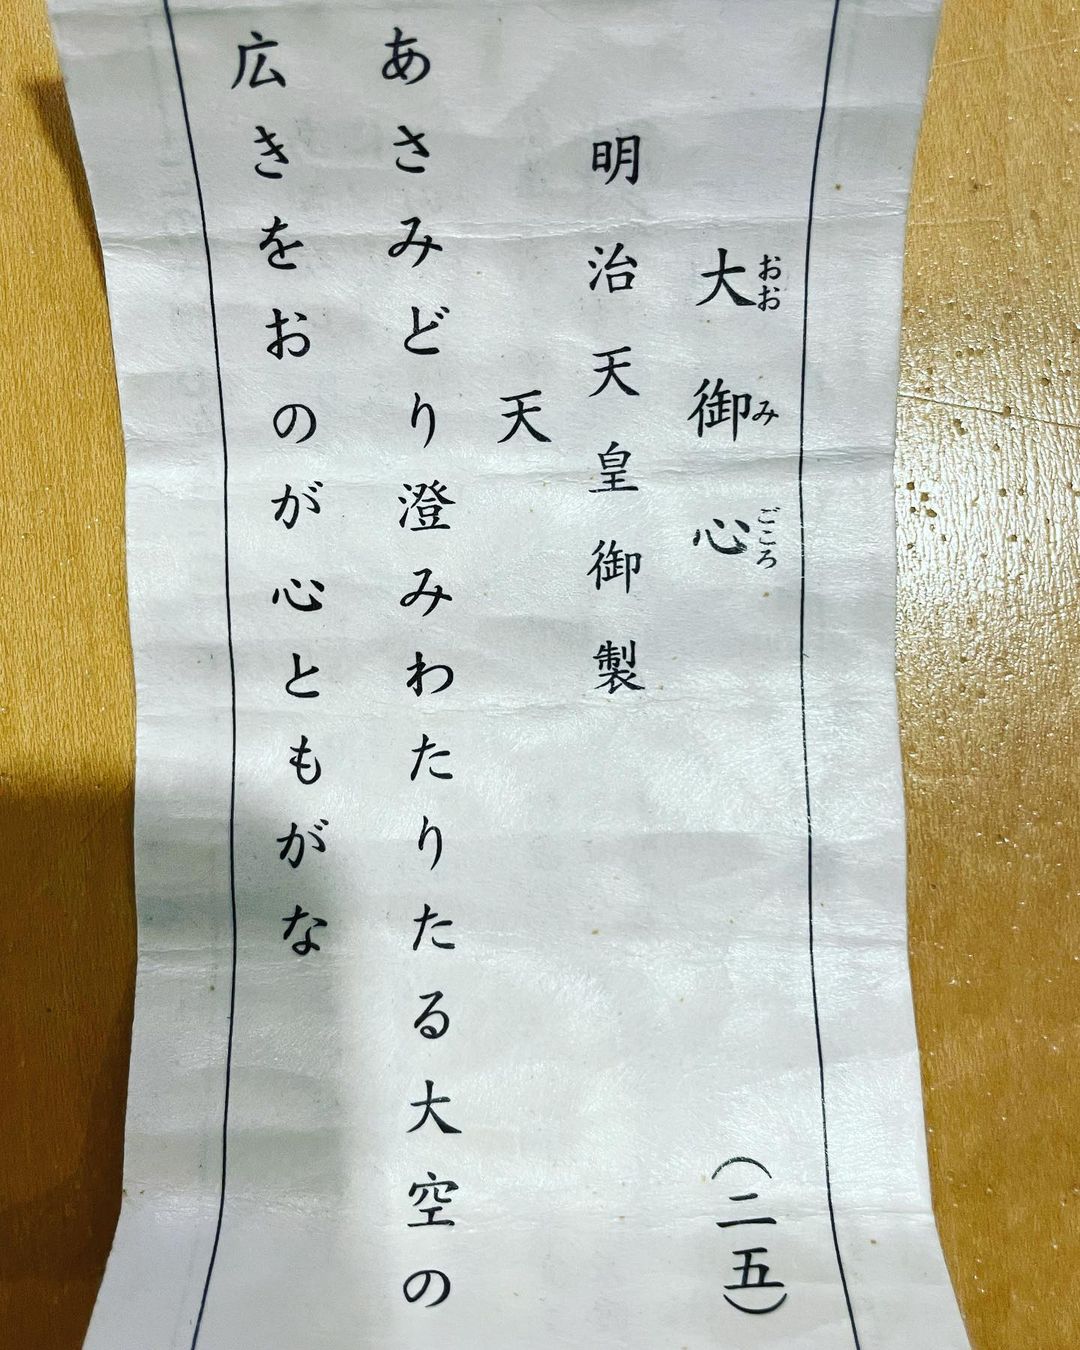 大御心
おおみごころ
（二五）
明治天皇御製
天
あさみどり澄みわたりたる大空の
広きをおのが心ともがな